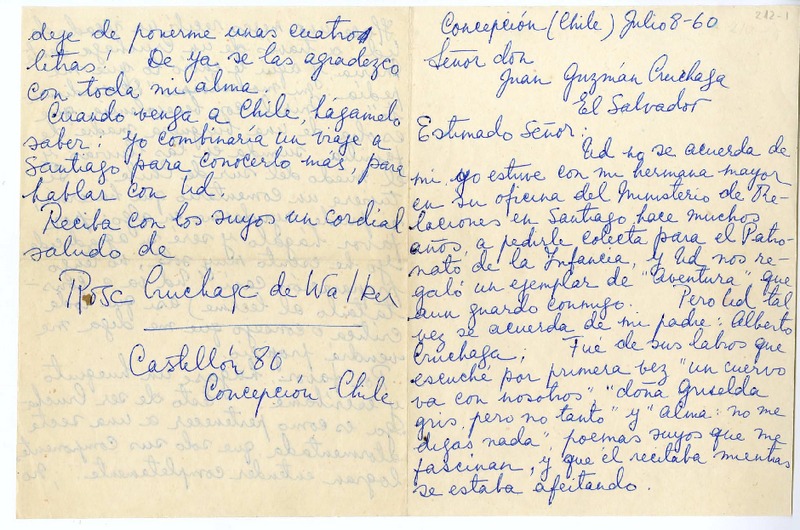 212-1
Concepción (Chile) Julio 8-60
Señor don
Juan Guzmán Cruchaga
El Salvador
Estimado Señor:
Ud no se acuerda de
mi, yo estuve con mi hermana mayor
en su oficina del Ministerio de Re-
laciones en Santiago, hace muchos
años, a pedirle colecta para el Patro-
nato de la Infancia, y Ud nos re-
galó un ejemplar de "Aventura" que
aun guardo conmigo. Pero Ud tal
vez se acuerda de mi padre: Alberto
Cruchaga; Fué de sus labios que
escuché por primera vez "un cuervo
va con nosotros", "doña Griselda
gris, pero no tanto" y "Alma: no me
digas nada", poemas suyos que me
fascinan, y que él recitaba mientras
se estaba afeitando.
deje de ponerme unas cuatro
letras. De ya se las agradezco
con toda mi alma.
Cuando venga a Chile, hágamelo
saber; yo combinaría un viaje a
Santiago para conocerlo más, para
hablar con Ud.
Reciba con los suyos un cordial
saludo de
Rosa Cruchaga de Walker
Castellón 80
Concepción-Chile